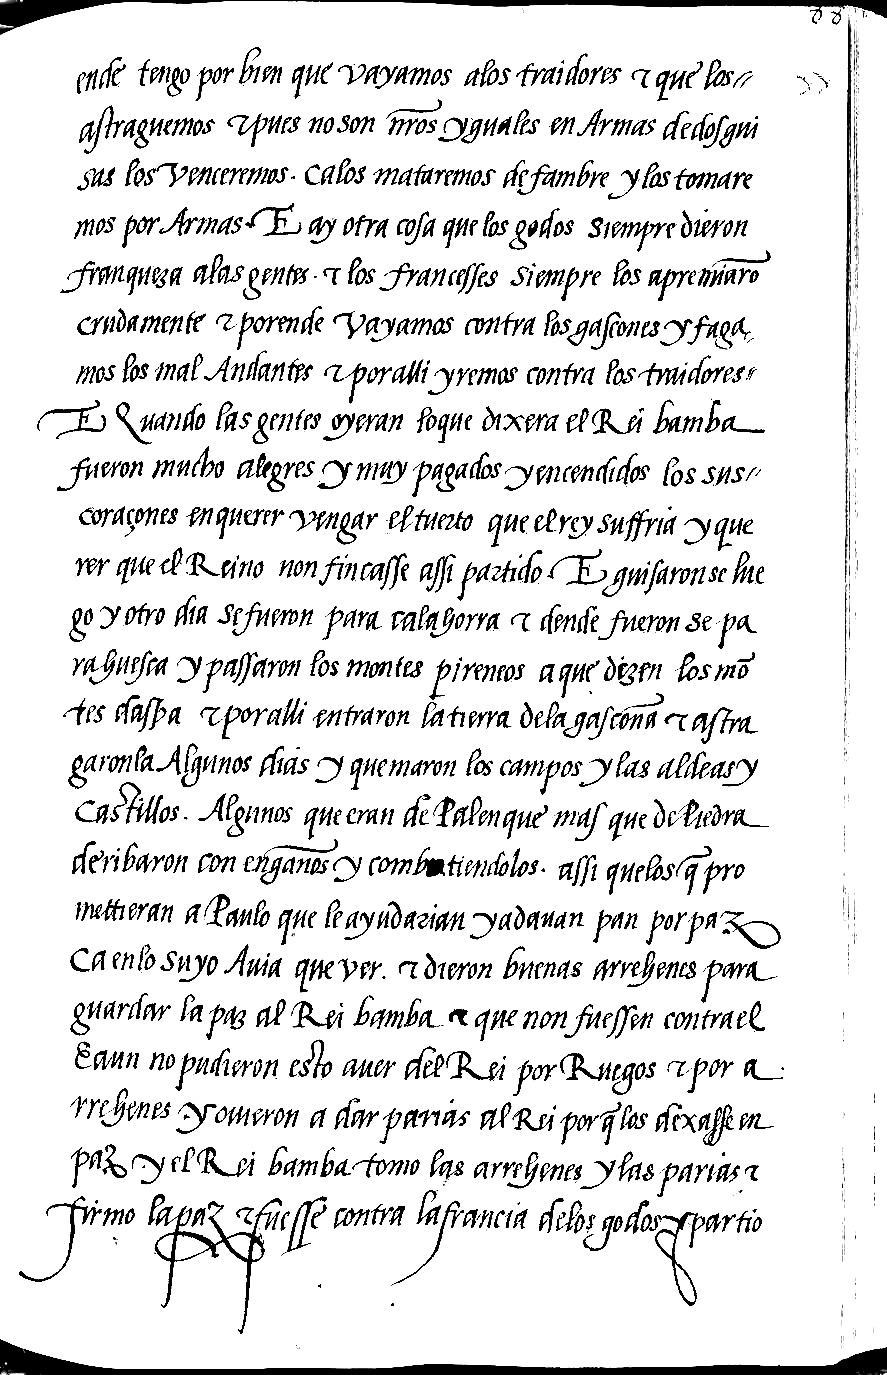 88
ende tengo por bien que vayamos alos traidores τ que los//
astraguemos τ pues no son nr̃os yguales en Armas de dos gui
sas los Venceremos. ca los mataremos de fambre y los tomare
mos por Armas. E ay otra cosa que los godos siempre dieron
franqueza alas gentes. τ los francesses siempre los apremiarõ
crudamente τ porende vayamos contra los gascones y faga
mos los mal Andantes τ por alli yremos contra los traidores//
E Quando las gentes oyeran loque dixera el Rei bamba
fueron mucho alegres y muy pagados y encendidos los sus//
coraçones en querer vengar el tuerto que el rey suffria y que
rer que el Reino non fincasse assi partido. E guisaron se lue
go y otro dia se fueron para calahorra τ dende fueron se pa
ra huesca y passaron los montes pireneos a que dizen los mõ
tes daspa τ por alli entraron la tierra dela gascoña τ astra
garonla Algunos dias y quemaron los campos y las aldeas y
Castillos. Algunos que eran de Palenque mas que de Piedra
deribaron con engaños y combatiendolos. assi quelos q̃ pro
mettieran a Paulo que le ayudarian yadauan pan por paz
Ca enlo suyo Auia que ver. τ dieron buenas arrehenes para
guardar la paz al Rei bamba τ que non fuessen contra el
E aun no pudieron esto auer del Rei por Ruegos τ por a
rrehenes y ouieron a dar parias al Rei porq̃ los dexasse en
paz y el Rei bamba tomo las arrehenes y las parias τ
firmo la paz τ fuesse contra la francia delos godos y partio